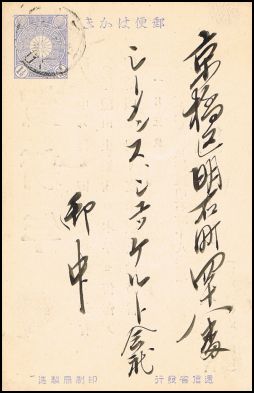 郵便はかき
京橋区明石町四十八番
シーメンス、シュッケルト会社
御中
逓信省発行
印刷局製造